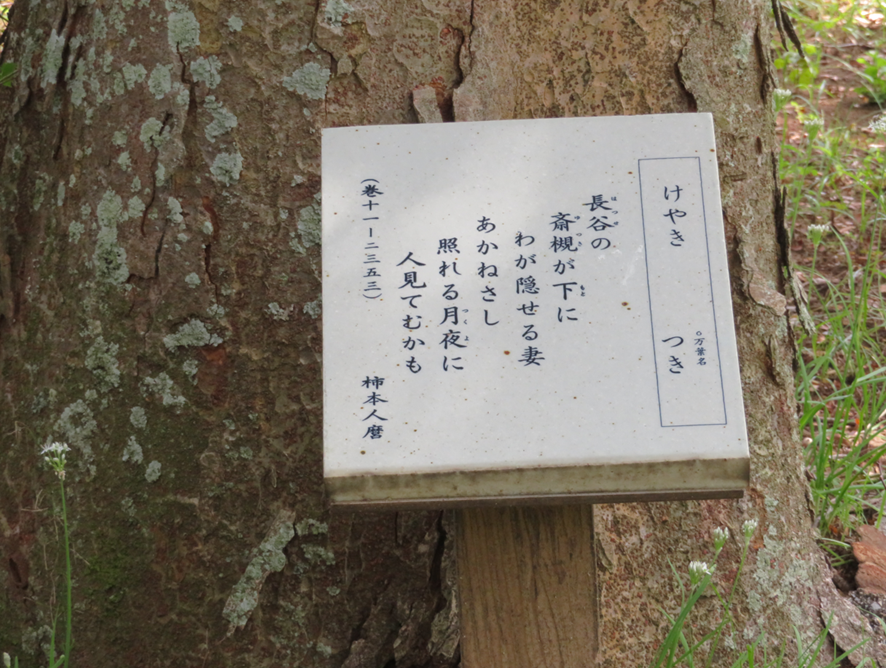 けやき ○万葉名 つき
長谷の
斎槻が下に
わが隠せる妻
あかねさし
照れる月夜に
人見てむかも
(巻十一ー二三五三) 柿本人麿
はつせ
ゆつき
もと
つくよ